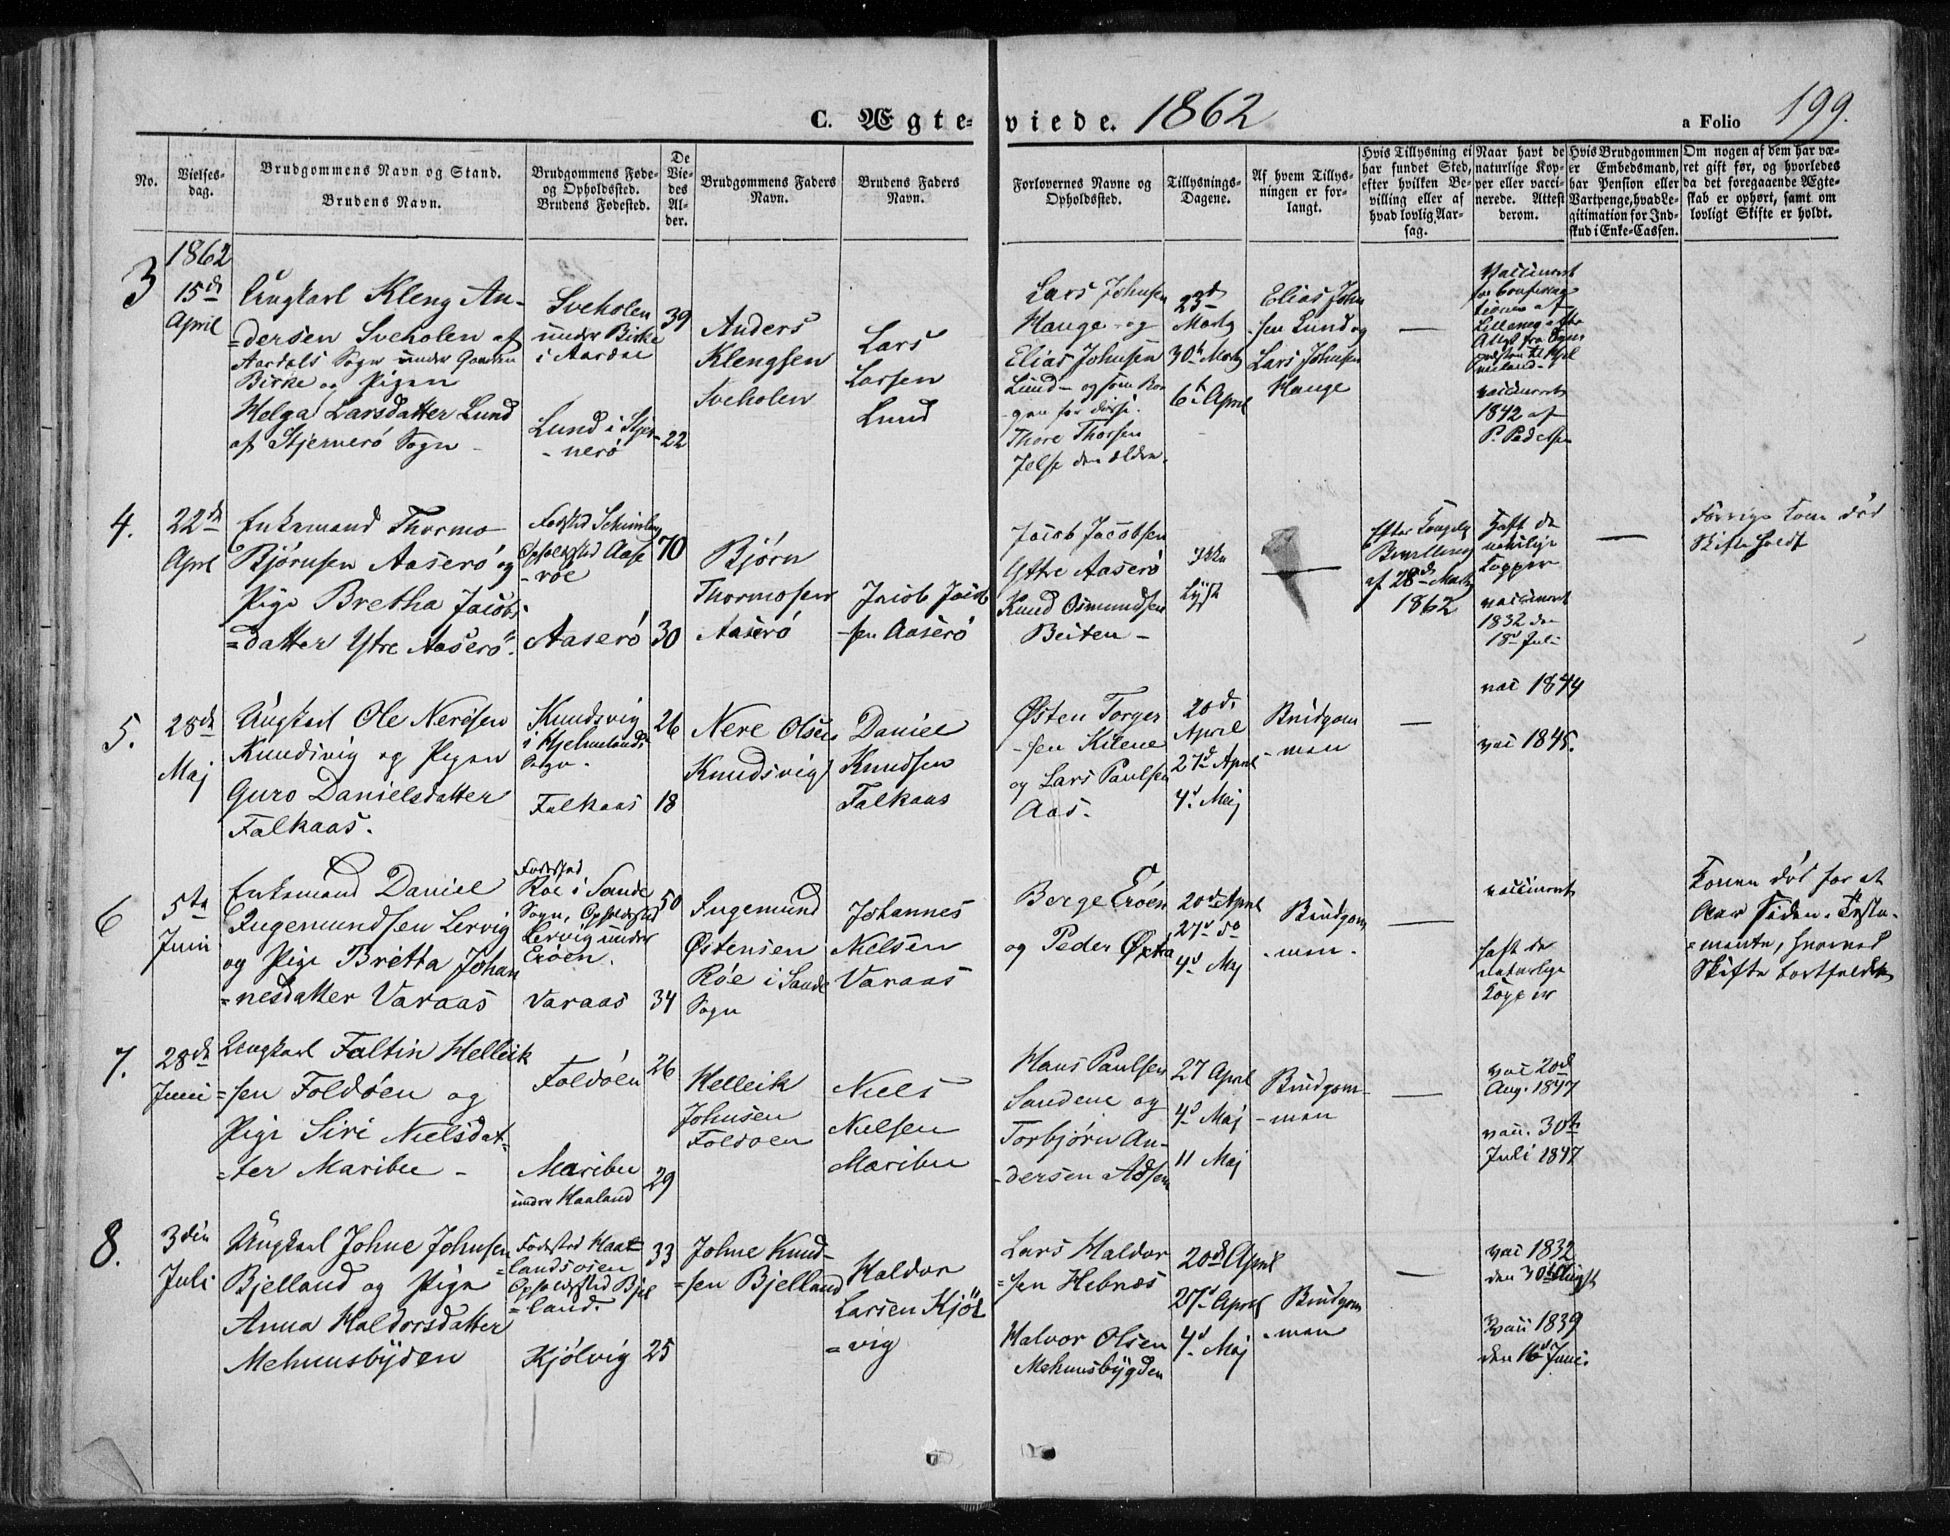 C. Ægteviede. 1862
a Folio 199.
No.
Vielses-
dag.
Brudgommens Navn og Stand.
Brudens Navn.
Brudgommens Føde-
og Opholdssted.
Brudens Fødested.
De
Vie-
des
Al-
der.
Brudgommens Faders
Navn.
Brudens Faders
Navn.
Forlovernes Navne og
Opholdssted.
Tillysnings-
Dagene.
Af hvem Tillys-
ningen er for-
langt.
Hvis Tillysning ei
har fundet Sted,
efter hvilken Be-
villing eller af
hvad lovlig Aar-
sag.
Naar havt de
naturlige Kop-
per eller vacci-
nerede. Attest
derom.
Hvis Brudgommen
er Embedsmand,
har Pension eller
Vartpenge, hvad Le-
gitimation for Ind-
skud i Enke-Cassen.
Om nogen af dem har væ-
ret gift før, og hvorledes
da det foregaaende Ægte-
skab er ophørt, samt om
lovligt Skifte er holdt.
3
1862
15de
April
Ungkarl Kleng An-
=dersen Sveholen af
Aardals Sogn under
Birke og Pigen
Helga Larsdatter Lund
af Stjernerö Sogn
Sveholen
under Birke
i Aardal
Lund i Stjer-
-nerö
39
22
Anders
Klengsen
Sveholen
Lars
Larsen
Lund
Lars Johnsen
Hauge og
Elias Johnsen
Lund - og som
for disse
Thore Thorsen
Jelse den ældre.
23d
Marts
30te Marts
6te April
Elias John
-sen Lund og
Lars Johnsen
Hauge
—
Vaccineret
for
Attest fra
vaccineret
1842 af
P.
4.
22de
April
Enkemand Thormo
Bjørnsen Aaserö og
Pige Bretha Jacobs-
=datter Ytre Aaserö.
Fødsted
Opholdssted Aase
-röe
Aaserö
70
30
Bjørn
Thormosen
Aaserö
Jacob Jacob
-sen Aaserö
Jacob Jacobsen
Ytre Aaserö
Knud Osmundsen
Beiten -
Ikke
Lyst
—
Efter Kongelig
Bevilling
af 28de Marts
1862
Haft de
naturlige
Kopper
vaccineret
1832 den
18d Juli
—
Forrige Kone død
Skifte holdt
5.
28de
Maj
Ungkarl Ole Nerösen
Kundsvig og Pigen
Guro Danielsdatter
Falkaas.
Knudsvig
i Hjelmelands
Sogn.
Falkaas
26
18
Nere Olsen
Knudsvig
Daniel
Knudsen
Falkaas
Østen Torger
-sen Kilene
og Lars Paulsen
Aas.
20d.
April
27d April
4d. Maj
Brudgom
-men
—
vac 1844
vac 1845.
6
5te
Juni
Enkemand Daniel
Ingemundsen Lervig
og Pige Bretta Johan
=nesdatter Varaas
Fødested
Röe i Sande
Sogn, Opholdssted
Lervig under
Eröen.
Varaas
50
34
Ingemund
Østensen
Röe i Sande
Sogn
Johannes
Nielsen
Varaas
Børge Eröen
og Peder
20d April
27d do
4d Maj
Brudgom
-men.
—
vaccineret
haft de
naturlige
Kopper
Konen död for et
Aar siden. Testa-
=mente, hvorved
Skifte bortfalder
7.
28de
Juni
Ungkarl Faltin Helleik
=sen Foldöen og
Pige Siri Nielsdat-
=ter Maribu -
Foldöen
Maribu
under Haaland
26
29
Helleik
Johnsen
Foldöen
Niels
Nielsen
Maribu
Hans Paulsen
Sandene og
Torbjørn An-
-dersen
27 April
4d Maj
11 Maj
Brudgom-
-men
—
vac 20d
Aug. 1847
vacc. 30te
Juli 1847
8.
3die
Juli
Ungkarl Johne Johnsen
Bjelland og Pige
Anna Haldorsdatter
Mehuusbÿden
Fødested Haa-
=landsosen
Opholdssted Bjel
=land.
Kjölvig
33
25
Johne Knud-
=sen Bjelland
Haldor
Larsen Kjöl
=vig
Lars Haldor
=sen Hebnæs
Halvor Olsen
Mehuusbÿgden
20d April
27d April
4d. Maj
Brudgom
-men
—
vac 1832
den 30te Augst
vacc 1839
den 16d Juni.